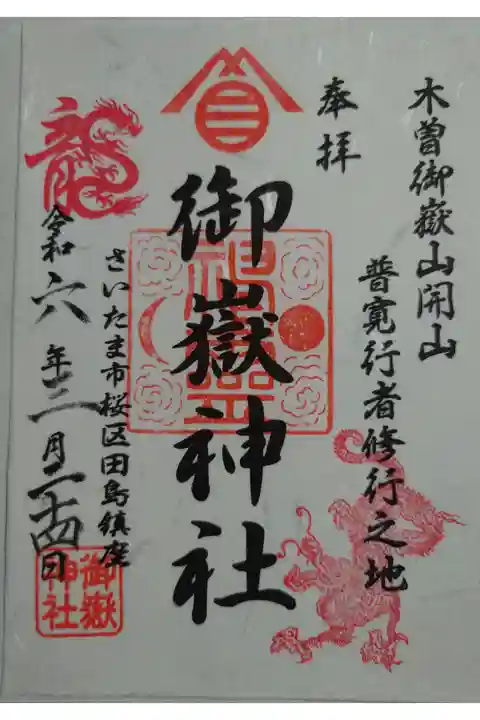 木曽御嶽山開山
普寛行者修行之地
奉拝
御嶽神社
さいたま市桜区田島鎮座
令和六年三月二十四日
龍
御嶽
神社